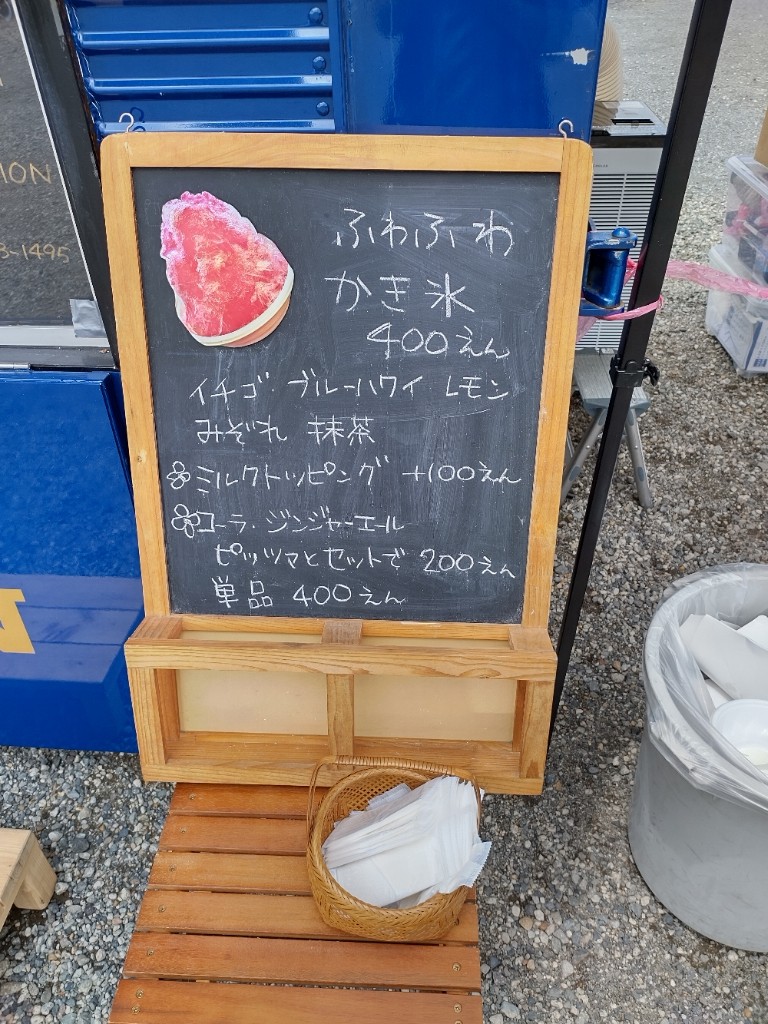 ION
3-1495
ふわふわ
かき氷
400えん
イチゴ ブルーハワイ レモン
みぞれ 抹茶
ミルクトッピング +100えん
コーラ・ジンジャーエール
ピッツマとセットで 200えん
単品 400えん